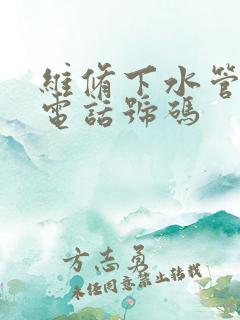 維脩下水管
電話號碼
方志勇
未經同意禁止轉載